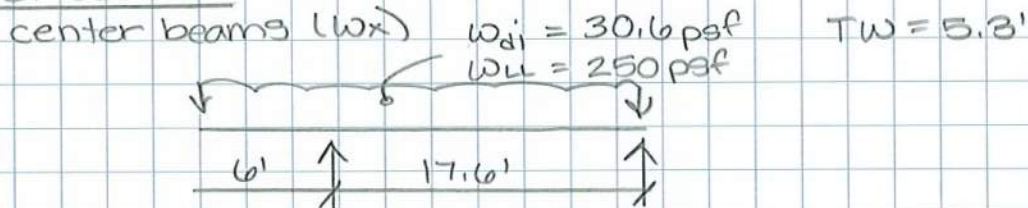 center beams (Wx) wdi = 30.6 psf TW = 5.3'
wLL = 250 psf
6' 17.6'